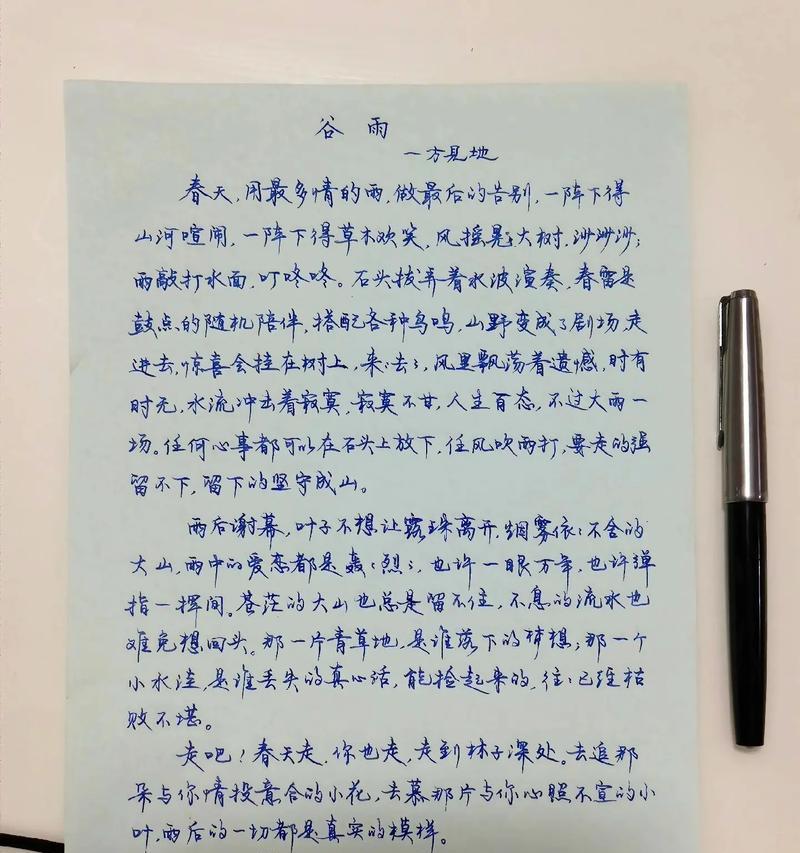 谷雨
一方见地
春天,用最多情的雨,做最后的告别,一阵下得
山河喧闹,一阵下得草木欢笑,风摇晃大树,沙沙沙;
雨敲打水面,叮咚咚。石头拔弄着水波演奏,春雷是
鼓点的随机陪伴,搭配各种鸟鸣,山野变成了剧场,走
进去,惊喜会挂在树上,来:去:,风里飘荡着遗憾,时有
时无,水流冲击着寂寞,寂寞不甘,人生百态,不过大雨一
场。任何心事都可以在石头上放下,任风吹雨打,要走的强
留不下,留下的坚守成山。
雨后谢幕,叶子不想让露珠离开,烟雾依:不舍的
大山,雨中的爱恋都是轰:烈:,也许一眼万年,也许弹
指一挥间。苍茫的大山也总是留不住,不息的流水也
难免想回头。那一片青草地,是谁落下的梦想;那一个
小水洼,是谁丢失的真心话,能捡起来的,往:已经枯
败不堪。
走吧!春天走,你也走,走到林子深处。去追那
朵与你情投意合的小花,去慕那片与你心照不宣的小
叶,雨后的一切都是真实的模样。